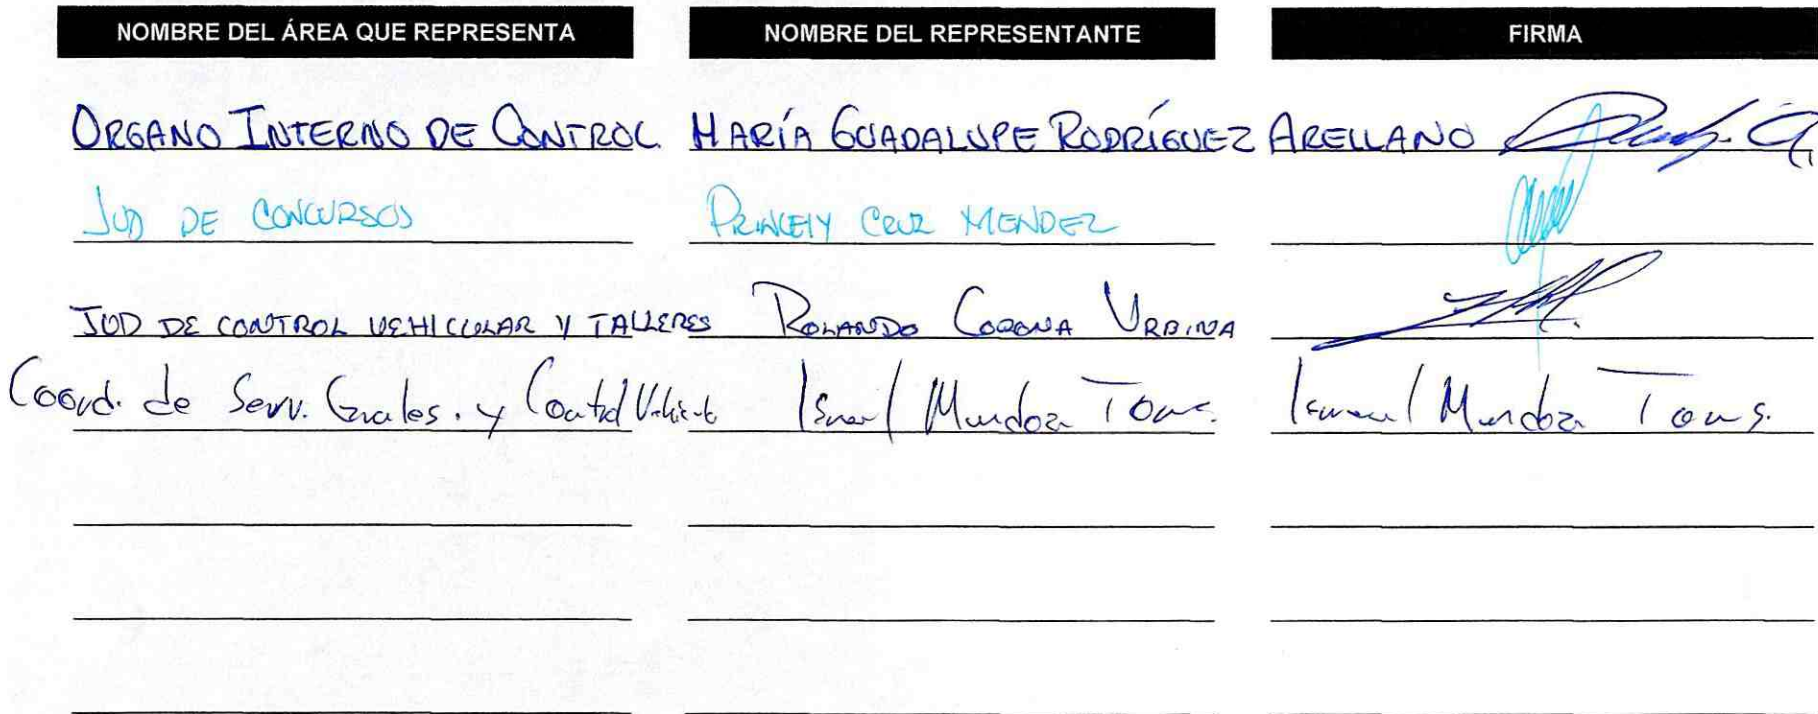 NOMBRE DEL ÁREA QUE REPRESENTA NOMBRE DEL REPRESENTANTE FIRMA
ORGANO INTERNO DE CONTROL MARÍA GUADALUPE RODRÍGUEZ ARELLANO
JUD DE CONCURSOS PRINCELY CRUZ MENDEZ
JUD DE CONTROL VEHICULAR Y TALLERES ROLANDO CORONA URBINA
Coord. de Serv. Grales. y Control Mendoza Mendoza